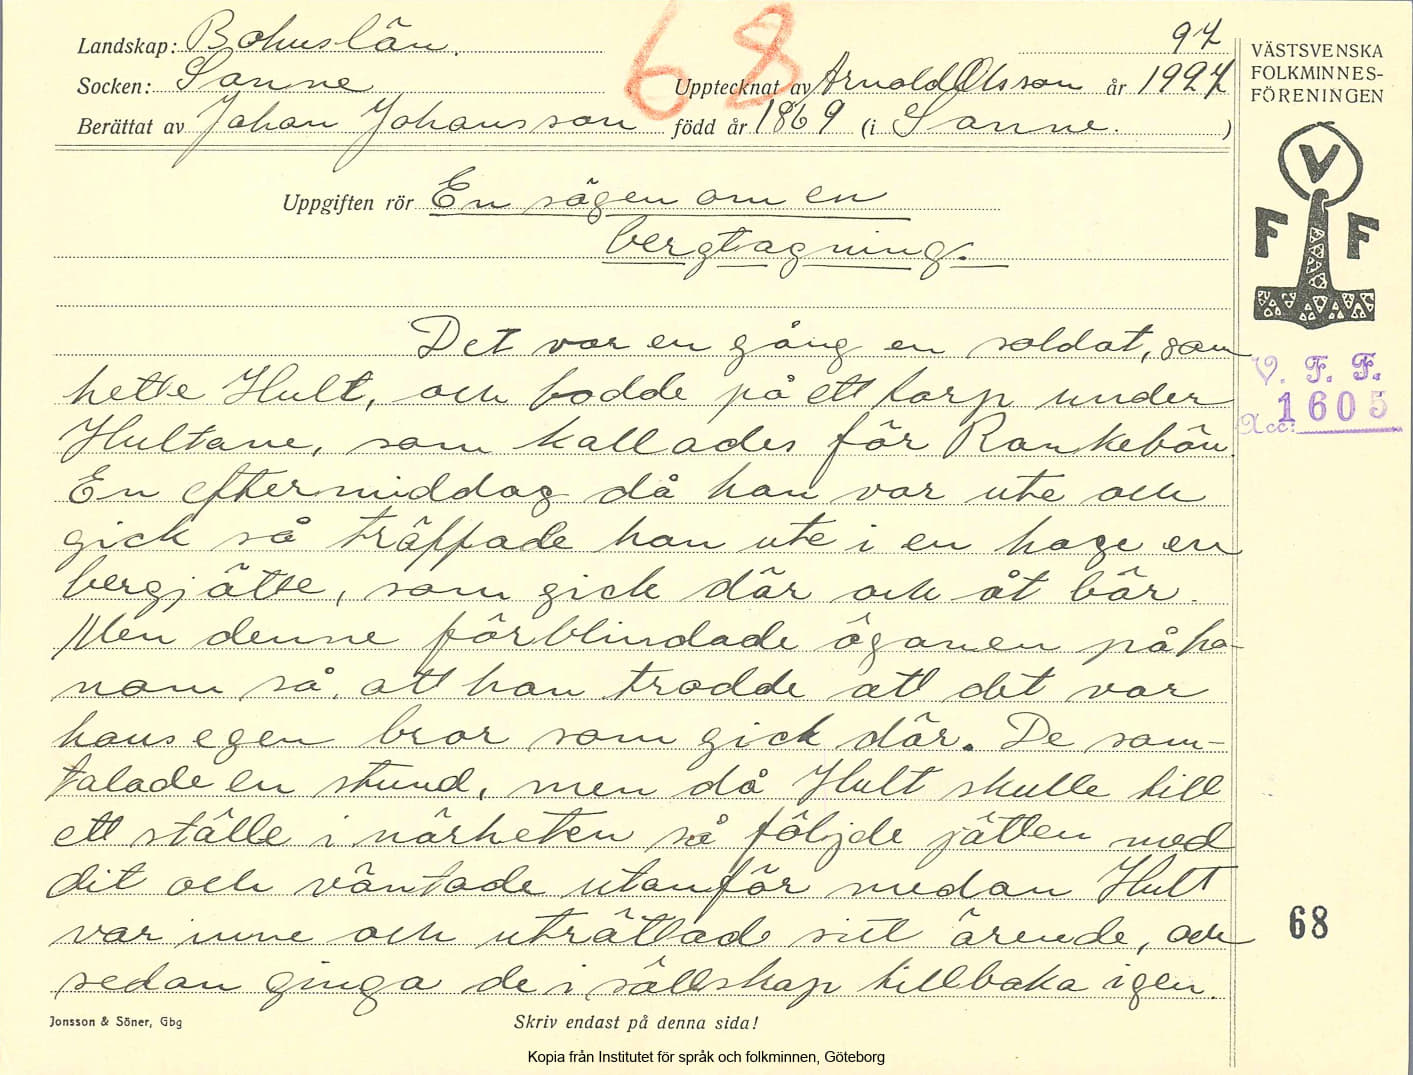 Landskap: Bohuslän. 97
Socken: Sanne Upptecknat av Arnold Olsson år 1927
Berättat av Johan Johansson född år 1869 (i Sanne.)
68
VÄSTSVENSKA
FOLKMINNES-
FÖRENINGEN
V
F F
Uppgiften rör En sägen om en
bergtagning.
Det var en gång en soldat, som
hette Hult, och bodde på ett torp under
Hultane, som kallades för Rankebôn.
En eftermiddag då han var ute och
gick så träffade han ute i en hage en
bergjätte, som gick där och åt bär.
Men denne förblindade ögonen på ho-
nom så, att han trodde att det var
hans egen bror som gick där. De sam-
talade en stund, men då Hult skulle till
ett ställe i närheten så följde jätten med
dit och väntade utanför medan Hult
var inne och uträttade sitt ärende, och
sedan gingo de i sällskap tillbaka igen.
V. F. F.
Acc: 1605
68
Jonsson & Söner, Gbg Skriv endast på denna sida!
Kopia från Institutet för språk och folkminnen, Göteborg